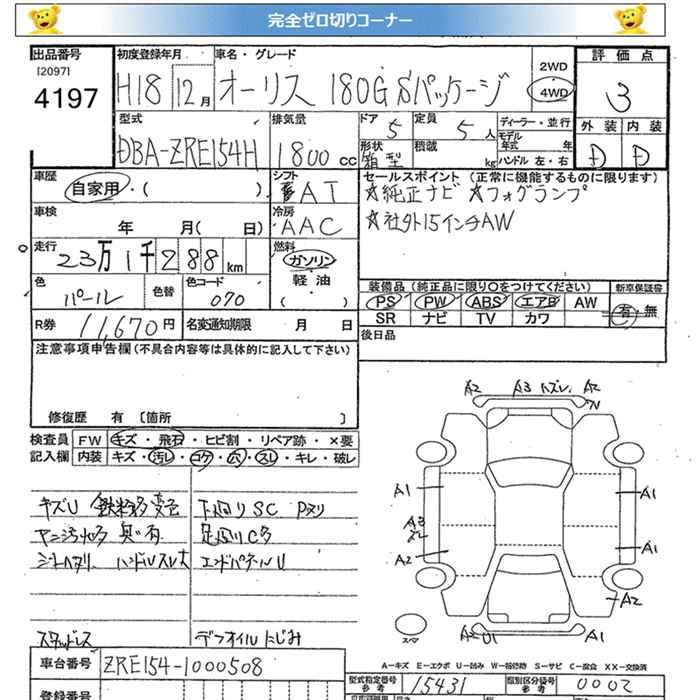 完全ゼロ切りコーナー
出品番号 初度登録年月 車名・グレード 2WD 評価点
[2097]
4197 H18 12月 オーリス 180G Sパッケージ 4WD 3
型式 排気量 ドア 5 定員 5人 ディーラー・並行 外装 内装
DBA-ZRE154H 1800cc 形状 箱型 積載 kg モデル年式 年 ハンドル 左・右 D D
車歴 シフト セールスポイント (正常に機能するものに限ります)
自家用・( ) AT ☆純正ナビ ☆フォグランプ
車検 冷房 ☆社外15インチAW
年 月( 日) AAC
走行 燃料
23万1千288km ガソリン
色 色替 色コード 軽油 装備品(純正品に限り○をつけてください) 新車保証書
パール 070 ( ) PS PW ABS エアB AW 有・無
R券 11,670円 名変通知期限 月 日 SR ナビ TV カワ
注意事項申告欄(不具合内容等は具体的に記入して下さい) 後日品
A2 A3 ハズレ A2
W
修復歴 有 [箇所 ]
検査員 FW キズ・飛石・ヒビ割・リペア跡・×要
記入欄 内装 キズ・汚レ・コゲ・穴・スレ・キレ・破レ
A1 A1
キズU 鉄粉多 変色 下回りSC Pヌリ
A3
ヤニ汚れ多 臭い有 足回りC多
A2 A1
シートヘタリ ハンドルスレ大 エンドパネルU
A2
スペア
スタッドレス デフオイルにじみ A2 U1 A1
A-キズ E-エクボ U-凹み W-補修跡 S-サビ C-腐食 XX-交換済
車台番号 ZRE154-1000508
型式指定番号 参考 15431 類別区分番号 参考 0002
登録番号